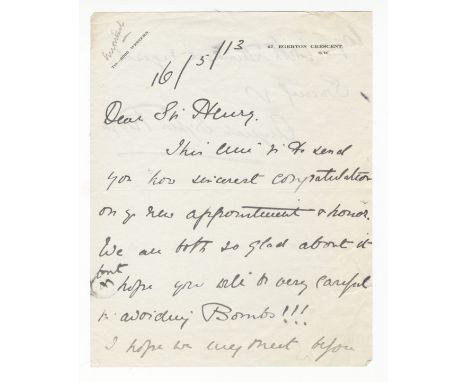 47, EGERTON CRESCENT,
S.W.
16/5/13
Dear Sir Henry.
This line is to send
you how sincerest congratulation
on yr new appointment & honor.
We are both so glad about it
but
hope you will be very careful
in avoiding Bombs!!!
I hope we may meet before